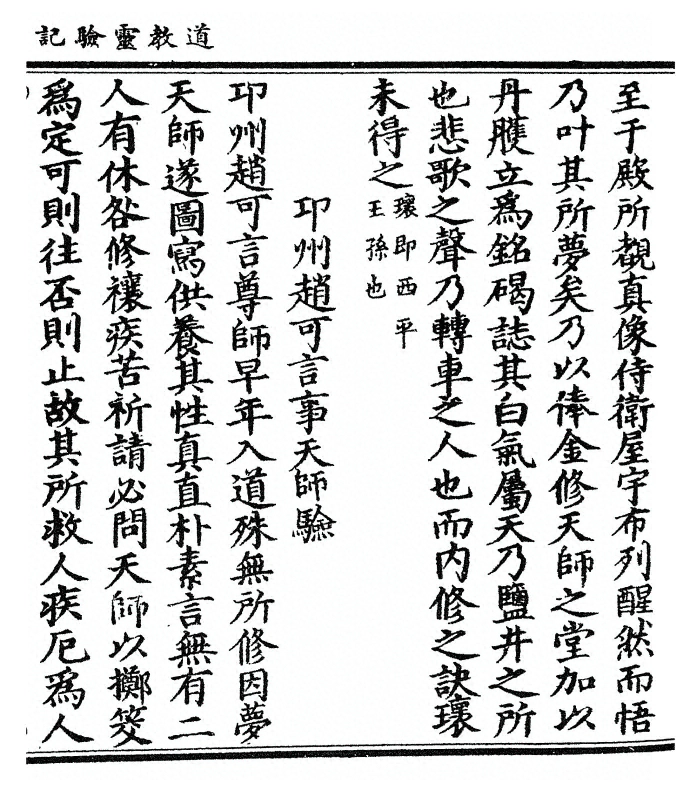 道教靈驗記
至于殿所覩真像侍衛屋宇布列醒然而悟
乃叶其所夢矣乃以俸金修天師之堂加以
丹雘立爲銘碣誌其白氣屬天乃鹽井之所
也悲歌之聲乃轉車之人也而内修之訣瓌
未得之瓌即西平
王孫也
卭州趙可言事天師驗
卭州趙可言尊師早年入道殊無所修因夢
天師遂圖寫供養其性真直朴素言無有二
人有休咎修禳疾苦祈請必問天師以擲筊
爲定可則往否則止故其所救人疾厄爲人